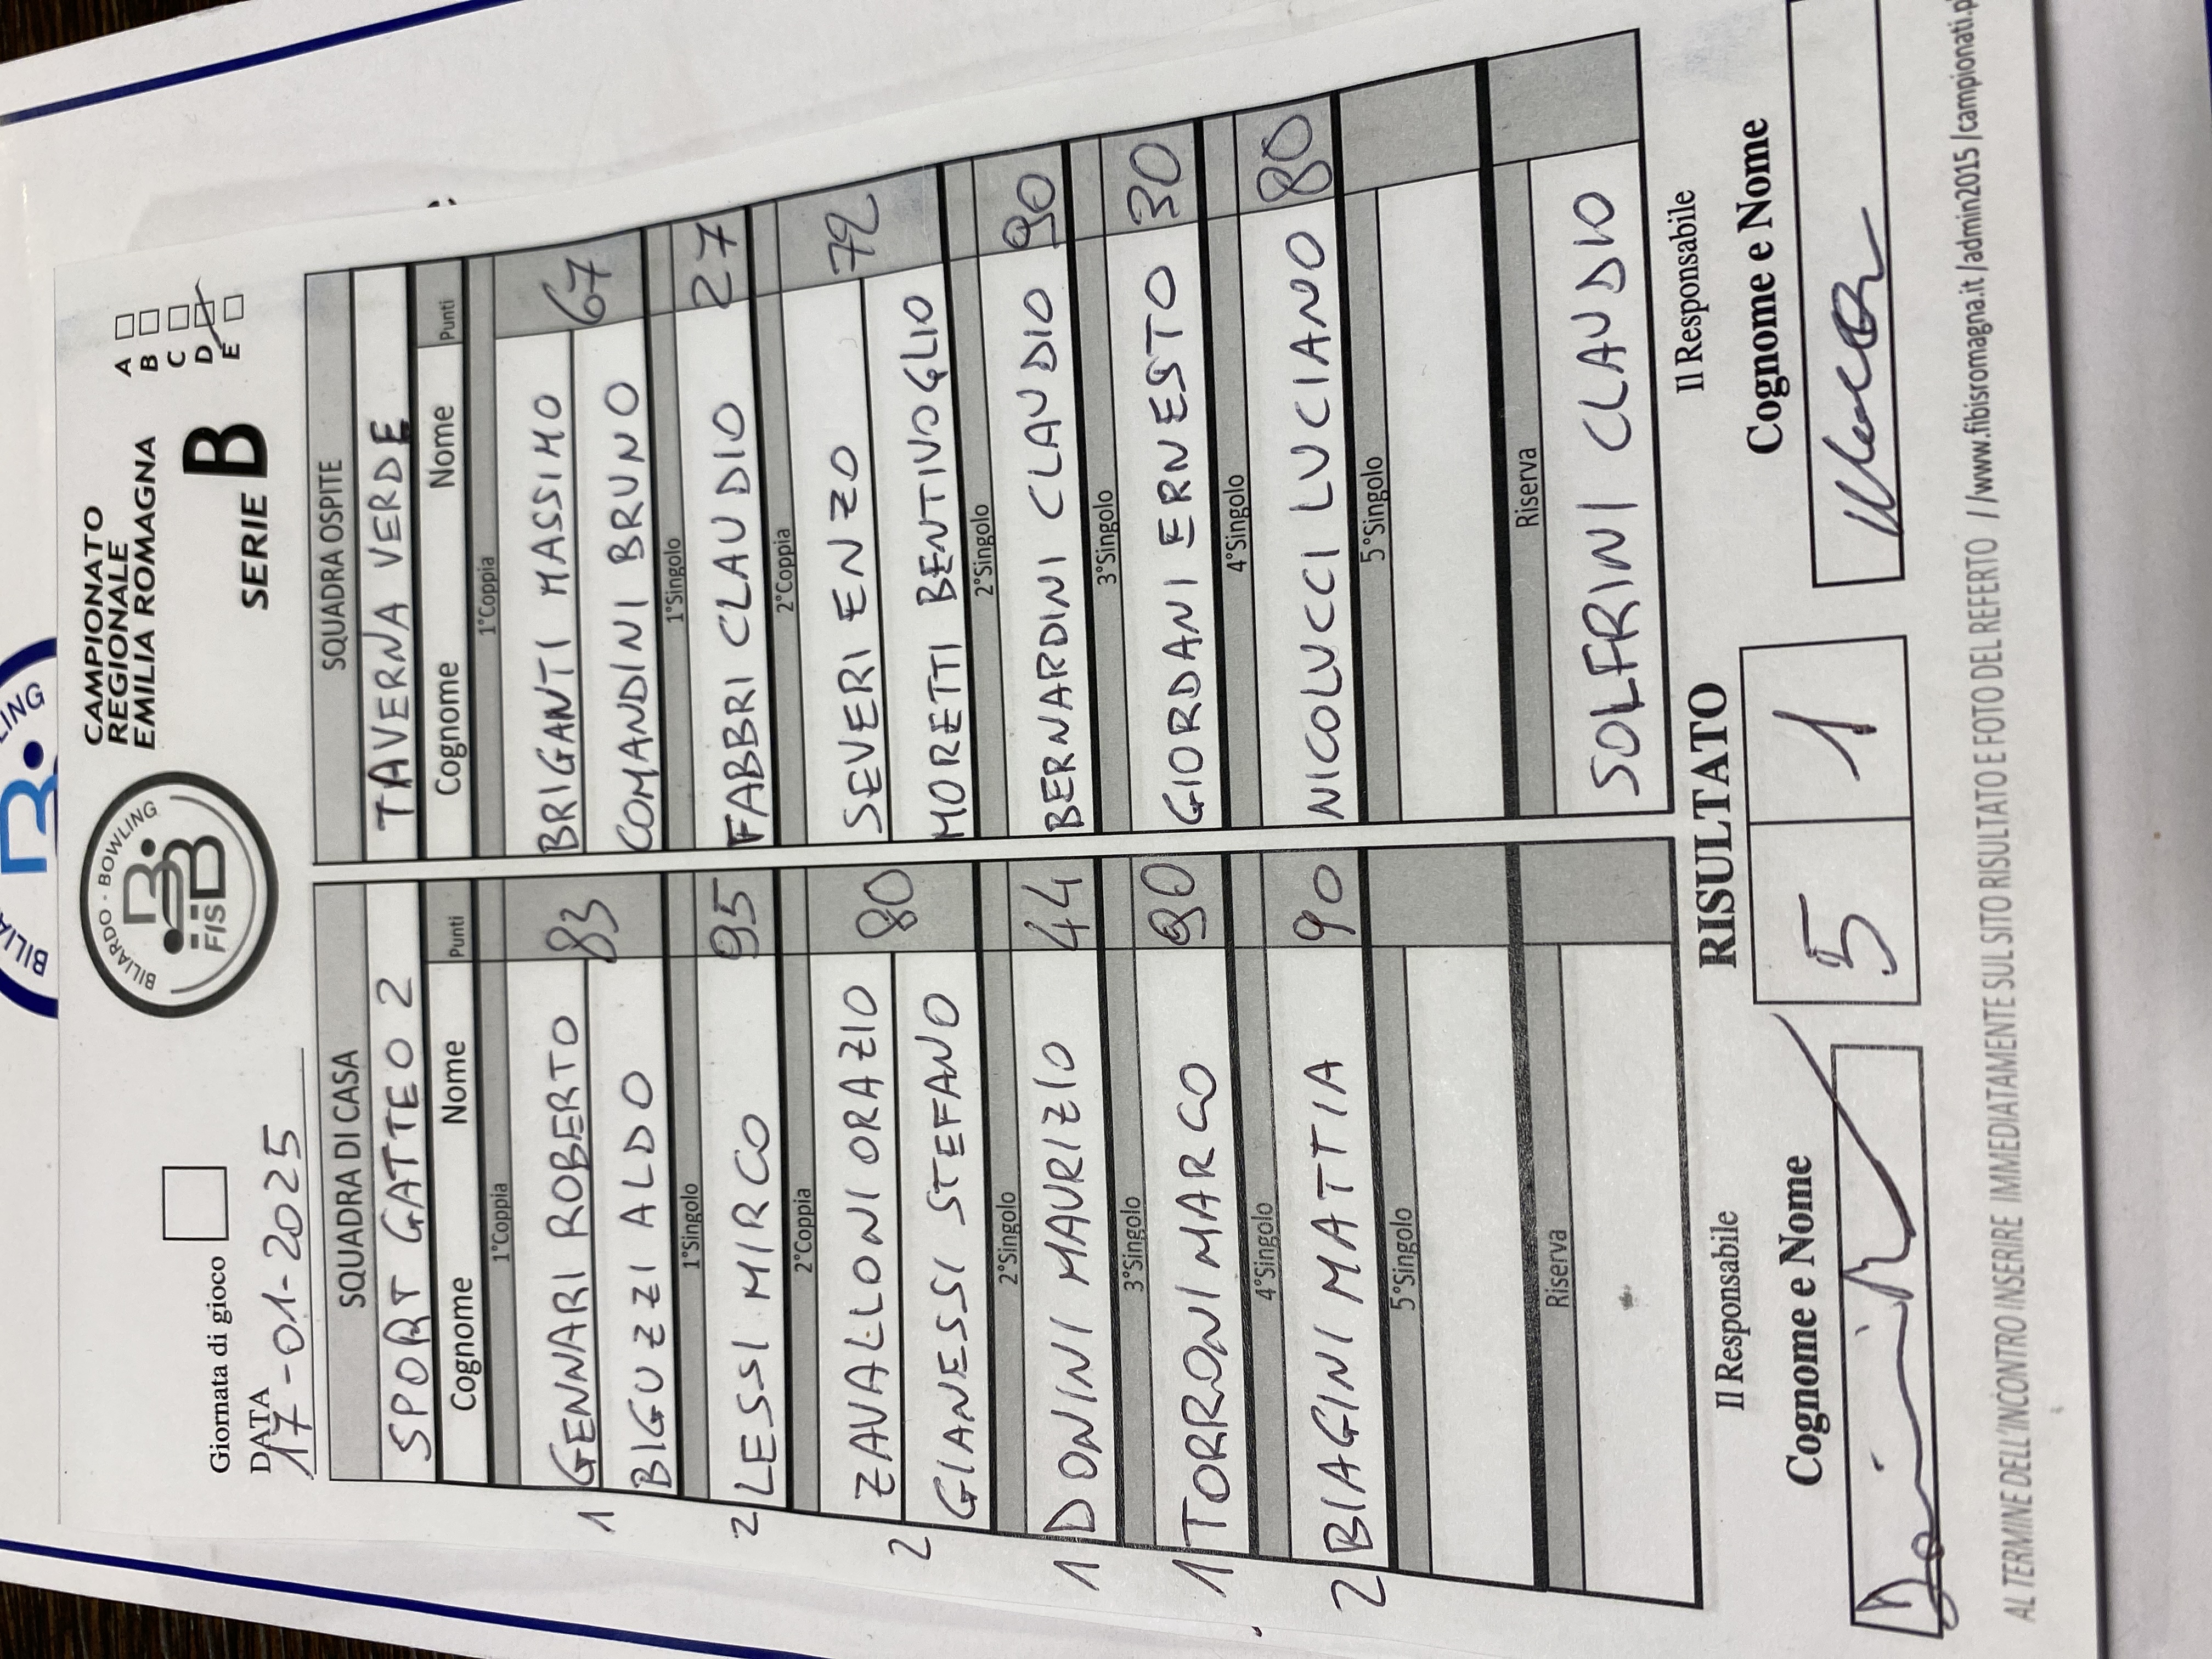 BILIARDO - BOWLING
FISBB
CAMPIONATO
REGIONALE
EMILIA ROMAGNA
Giornata di gioco
DATA
17-01-2025
SERIE B
A
B
C
D
E
SQUADRA DI CASA
SPORT GATTEO 2
Cognome Nome Punti
1°Coppia
1 GENNARI ROBERTO 83
BIGUZZI ALDO
1°Singolo
2 LESSI MIRCO 95
2°Coppia
ZAVALLONI ORAZIO 80
2 GIANESSI STEFANO
2°Singolo
1 DONINI MAURIZIO 44
3°Singolo
1 TORRONI MARCO 90
4°Singolo
2 BIAGINI MATTIA 90
5°Singolo
Riserva
SQUADRA OSPITE
TAVERNA VERDE
Cognome Nome Punti
1°Coppia
BRIGANTI MASSIMO 67
COMANDINI BRUNO
1°Singolo
FABBRI CLAUDIO 27
2°Coppia
SEVERI ENZO 72
MORETTI BENTIVOGLIO
2°Singolo
BERNARDINI CLAUDIO 90
3°Singolo
GIORDANI ERNESTO 30
4°Singolo
NICOLUCCI LUCIANO 80
5°Singolo
Riserva
SOLFRINI CLAUDIO
Il Responsabile
Cognome e Nome
RISULTATO
5 1
Il Responsabile
Cognome e Nome
AL TERMINE DELL'INCONTRO INSERIRE IMMEDIATAMENTE SUL SITO RISULTATO E FOTO DEL REFERTO //www.fibisromagna.it /admin2015 /campionati.p